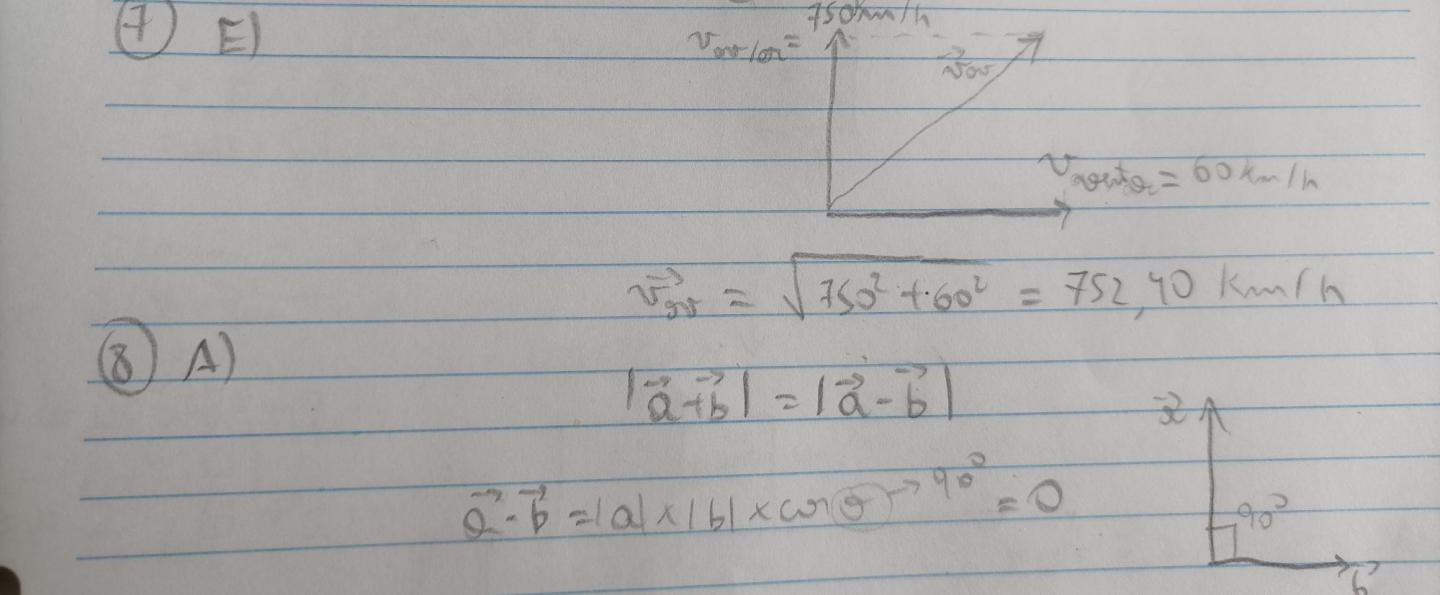 ⑦ E)
750 km/h
v_av/ar =
v⃗_av
v_vento = 60 km/h
v⃗_av = √(750² + 60²) = 752,40 km/h
⑧ A)
|a⃗ + b⃗| = |a⃗ - b⃗|
a⃗ · b⃗ = |a| × |b| × cos θ → 90° = 0
a⃗
90°
b⃗